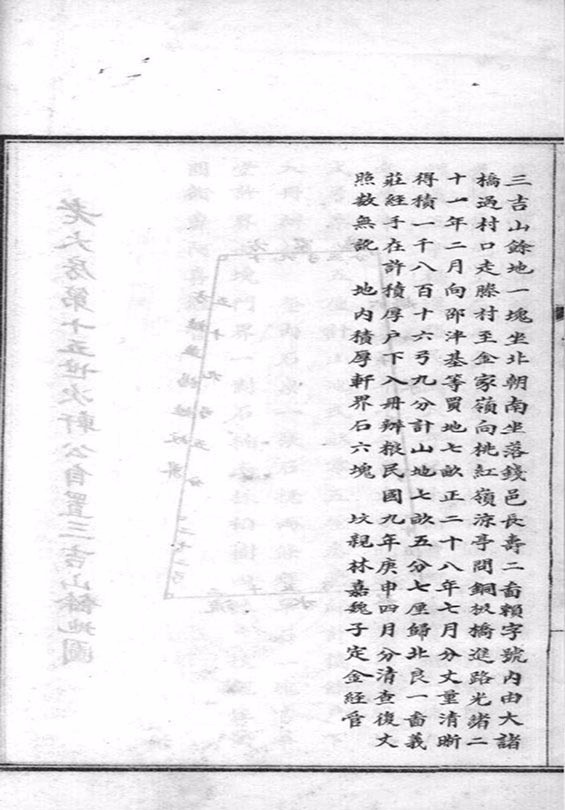 三吉山餘地一塊坐北朝南坐落錢邑長壽二畣賴字號內由大諸
橋過村口走滕村至金家嶺向桃紅嶺涼亭問銅板橋進路光緒二
十一年二月向邵津基等買地七畝正二十八年七月分丈量清晰
得積一千八百十六弓九分計山地七畝五分七厘歸北良一畣義
莊經手在許積厚戶下入冊辦粮民國九年庚申四月分清查復丈
照數無訛　地內積厚軒界石六塊　坟親林嘉魏子定金經管
老大房第十五世次軒公自置三吉山餘地圖